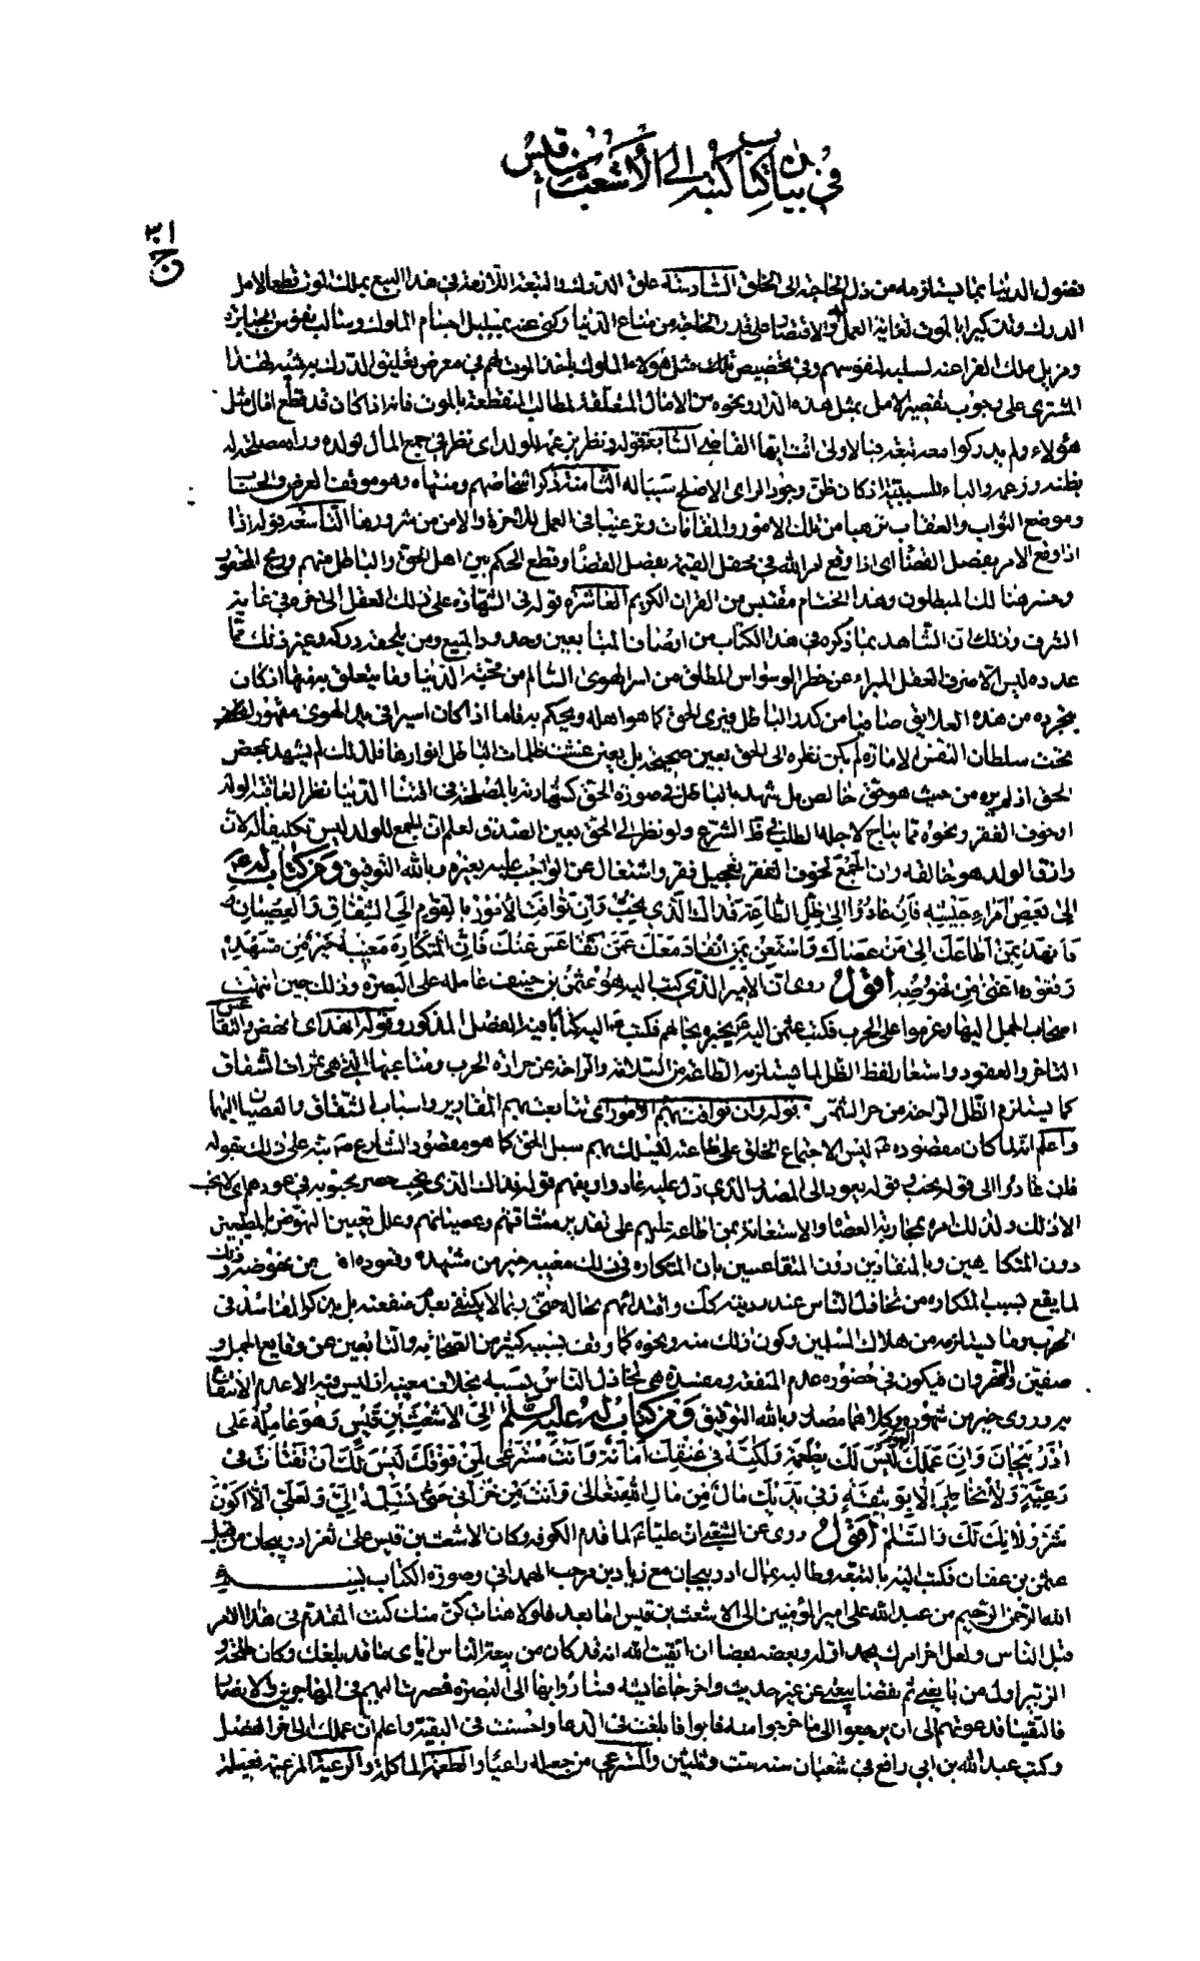 في بيان كتاب كتبه الى الأشعث بن قيس
ج ٣٠١
فضول الدنيا بما يستلزمه من ذل الحاجة الى الخلق السادسة علق الدرك والتبعة اللازمة في هذا البيع بملك الموت قطعا لامل
الدرك وتذكيرا بالموت لغاية العمل والاقتصار على قدر الحاجة من متاع الدنيا وكنى عنه بمبلبل اجسام الملوك وسالب نفوس الجبابرة
ومزيل ملك الفراعنة لسلبه لنفوسهم وفي تخصيص ذلك مثل هؤلاء الملوك باخذ الموت لهم في معرض تعليق الدرك به تنبيه لهذا
المشتري على وجوب تقصير الامل بمثل هذه الدار ونحوه من الامال المتعلقة لمطالب المنقطعة بالموت فانه اذا كان قد قطع امال مثل
هؤلاء ولم يدركوا معه تبعة فبالاولى انت ايها القاضي السابعة قوله ونظر بزعمه للولد اي نظر في جمع المال لولده ورآه مصلحة له
بظنه وزعمه والباء للسببية اذ كان ظن وجود الراى الاصلح سببا له الثامنة ذكر اشخاصهم ومنتهاه وهو موقف العرض والحساب
وموضع الثواب والعقاب ترهيبا من تلك الامور والمقامات وترغيبا في العمل للآخرة والامن من شرورها التاسعة قوله اذا
اذا وقع الامر بفصل القضا اى اذا وقع امر الله في محفل القيمة بفصل القضا وقطع الحكم بين اهل الحق والباطل منهم وربح المحقون
وخسر هنالك المبطلون وهذا الختام مقتبس من القران الكريم العاشرة قوله في الشهادة على ذلك العقل الى اخره في غاية
الشرف وذلك ان الشاهد بما ذكره في هذا الكتاب من اوصاف المتبايعين وحدود المبيع ومن يلحقه دركه وغير ذلك مما
عدده ليس الا صرف العقل المبراء عن خطر الوسواس المطلق من اسر الهوى السالم من محبة الدنيا وما يتعلق به منها اذ كان
بتجرده من هذه العلايق صافيا من كدر الباطل فيرى الحق كما هو اهله ويحكم به فاما اذا كان اسيرا في يد الهوى مقهورا
تحت سلطان النفس الامارة لم يكن نظره الى الحق بعين صحيحة بل بعين غشت ظلمات الباطل انوارها فلذلك لم يشهد بمحض
الحق اذ لم يره من حيث هو حق خالص بل شهد بالباطل في صورة الحق كشهادته بالمصلحة في اقتنا الدنيا نظر العاقبة الولد
او خوف الفقر ونحوه مما يباح لاجله الطلب في ظ الشرع ولو نظر الى الحق بعين الصدق لعلم ان الجمع للولد ليس تكليفا له لان
رازق الولد هو خالقه وان الجمع لخوف الفقر تعجيل فقر واشتغال عن الواجب عليه بغيره وبالله التوفيق ومن كتاب له ع
الى بعض امراء جيشه فان عادوا الى ظل الطاعة فذاك الذي نحب وان توافت الامور بالقوم الى الشقاق والعصيان
فانهد بمن اطاعك الى من عصاك واستغن بمن انقاد معك عمن تقاعس عنك فان المتكاره مغيبه خير من مشهده
وقعوده اغنى من نهوضه اقول روى ان الامير الذي كتب اليه هو عثمن بن حنيف عامله على البصرة وذلك حين انتهت
اصحاب الجمل اليها وعزموا على الحرب فكتب عثمن اليه ع يخبره بحالهم فكتب ع اليه كتابا فيه الفصل المذكور وقوله انهد اى انهض والتقاعس
التاخر والقعود واستعار لفظ الظل لما يستلزمه الطاعة من السلامة والراحة عن حرارة الحرب ومتاعبها التي هي ثمرات الشقاق
كما يستلزم الظل الراحة من حر الشمس قوله وان توافت بهم الامور اى تتابعت بهم المقادير واسباب الشقاق والعصيان اليهما
واعلم انه لما كان مقصوده ع ليس الا اجتماع الخلق على طاعته ليسلك بهم سبيل الحق كما هو مقصود الشارع ص نبه على ذلك بقوله
فان عادوا الى قوله نحب وقوله يعود الى المصدر الذي دل عليه عادوا ويفهم قوله فذاك الذي نحب حصر محبوبه في عودهم اى لا نحب
الا ذلك ولذلك امره بمحاربة العصاة والاستعانة بمن اطاعه عليهم على تقدير مشاقتهم وعصيانهم وعلل تعيين النهوض بالمطيعين
دون المتكارهين وبالمنقادين دون المتقاعسين بان المتكاره في ذلك مغيبه خير من مشهده وقعوده اغنى من نهوضه وذلك
لما يقع بسبب المتكاره من تخاذل الناس عند رؤيته كك واقتدائهم بحاله حتى ربما لا يكتفى بعدم منفعته بل يذكر المفاسد في
الحرب وما يستلزمه من هلاك المسلمين وكون ذلك منه ونحوه كما وقعت بسببه كثير من الصحابة والتابعين عن وقايع الجمل و
صفين والنهروان فيكون في حضوره عدم المنفعة ومفسدة هي تخاذل الناس بسببه بخلاف مغيبه اذ ليس فيه الا عدم الانتفاع
به وروى خير من شهوده وكلاهما مصدر وبالله التوفيق ومن كتاب له عليه السلم الى الاشعث بن قيس وهو عامله على
اذربيجان وان عملك ليس لك بطعمة ولكنه في عنقك امانة وانت مسترعى لمن فوقك ليس لك ان تفتات في
رعية ولا تخاطر الا بوثيقة وفي يديك مال من مال الله تعالى وانت من خزاني حتى تسلمه الي ولعلي الا اكون
شر ولاتك لك والسلم اقول روى عن الشعبي ان عليا ع لما قدم الكوفة وكان الاشعث بن قيس على ثغر اذربيجان من قبل
عثمن بن عفان فكتب اليه بالبيعة وطالبه بمال اذربيجان مع زياد بن مرحب الهمداني وصورة الكتاب بسم
الله الرحمن الرحيم من عبد الله علي امير المؤمنين الى الاشعث بن قيس اما بعد فلولا هنات كن منك كنت المقدم في هذا الامر
قبل الناس ولعل اخر امرك يحمد اوله وبعضه بعضا ان اتقيت الله انه قد كان من بيعة الناس اياى ما قد بلغك وكان طلحة و
الزبير اول من بايعني ثم نقضا بيعتي عن غير حدث واخرجا عايشة وسارا بها الى البصرة فصرت اليهم في المهاجرين والانصار
فالتقينا فدعوتهم الى ان يرجعوا الى ما خرجوا منه فابوا فابلغت في الدعاء واحسنت في البقية واعلم ان عملك الى اخر الفصل
وكتب عبد الله بن ابي رافع في شعبان سنة ست وثلثين والمسترعي من جعله راعيا والطعمة الماكلة والرعية المرعية فعيلة